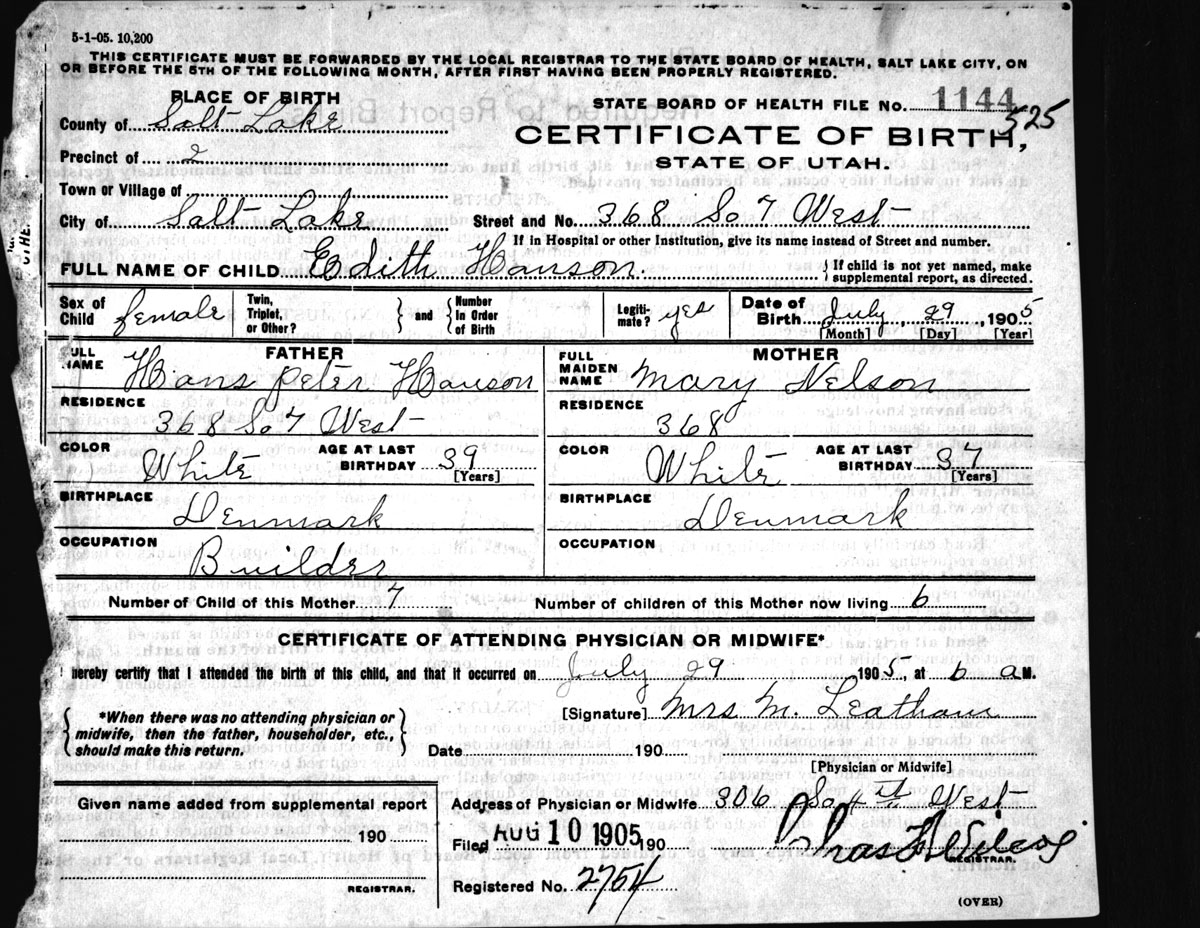 5-1-05. 10,200
THIS CERTIFICATE MUST BE FORWARDED BY THE LOCAL REGISTRAR TO THE STATE BOARD OF HEALTH, SALT LAKE CITY, ON
OR BEFORE THE 5TH OF THE FOLLOWING MONTH, AFTER FIRST HAVING BEEN PROPERLY REGISTERED.
PLACE OF BIRTH
STATE BOARD OF HEALTH FILE NO. 1144
525
County of Salt Lake
CERTIFICATE OF BIRTH,
Precinct of 2
STATE OF UTAH.
Town or Village of
City of Salt Lake Street and No. 368 So 7 West
If in Hospital or other Institution, give its name instead of Street and number.
FULL NAME OF CHILD Edith Hanson { If child is not yet named, make supplemental report, as directed.
Sex of Child female Twin, Triplet, or Other? } and { Number In Order of Birth Legiti-mate? yes Date of Birth July 29, 1905
[Month] [Day] [Year]
FATHER
FULL NAME Hans Peter Hanson
RESIDENCE
368 So 7 West
COLOR White AGE AT LAST BIRTHDAY 39
[Years]
BIRTHPLACE
Denmark
OCCUPATION
Builder
MOTHER
FULL MAIDEN NAME Mary Nelson
RESIDENCE
368
COLOR White AGE AT LAST BIRTHDAY 37
[Years]
BIRTHPLACE
Denmark
OCCUPATION
Number of Child of this Mother 7 Number of children of this Mother now living 6
CERTIFICATE OF ATTENDING PHYSICIAN OR MIDWIFE*
I hereby certify that I attended the birth of this child, and that it occurred on July 29 1905, at 6 a M.
{ *When there was no attending physician or midwife, then the father, householder, etc., should make this return. }
[Signature] Mrs M. Leatham
Date 190
[Physician or Midwife]
Given name added from supplemental report
190
REGISTRAR.
Address of Physician or Midwife 306 So 4th West
Filed AUG 10 1905, 190 Chas F Wilcox
REGISTRAR.
Registered No. 2754
(OVER)